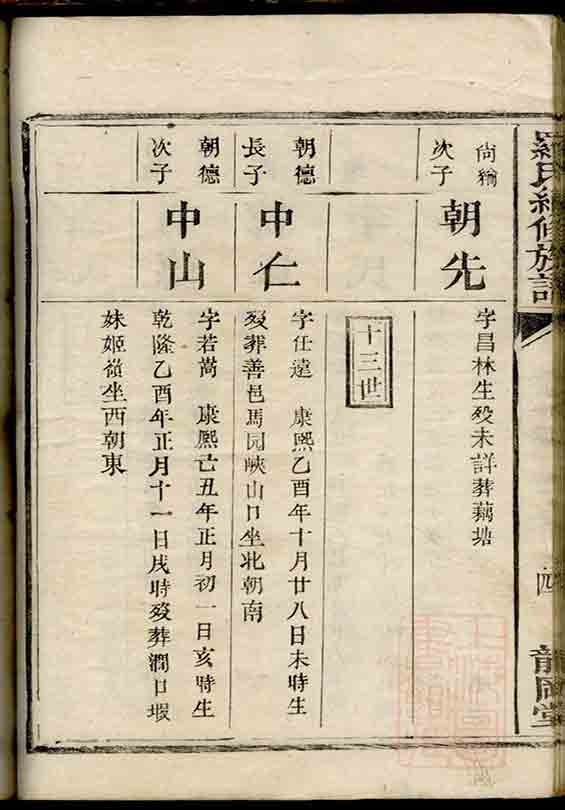 羅氏續修族譜
四
龍岡堂
尙綸
次子
朝先
字昌林生歿未詳葬藕塘
十三世
朝德
長子
中仁
字仕達　康熙乙酉年十月廿八日未時生
歿葬善邑馬园峽山口坐北朝南
朝德
次子
中山
字若嵩　康熙亡丑年正月初一日亥時生
乾隆乙酉年正月十一日戌時歿葬澗口堰
妹姬嶺坐西朝東